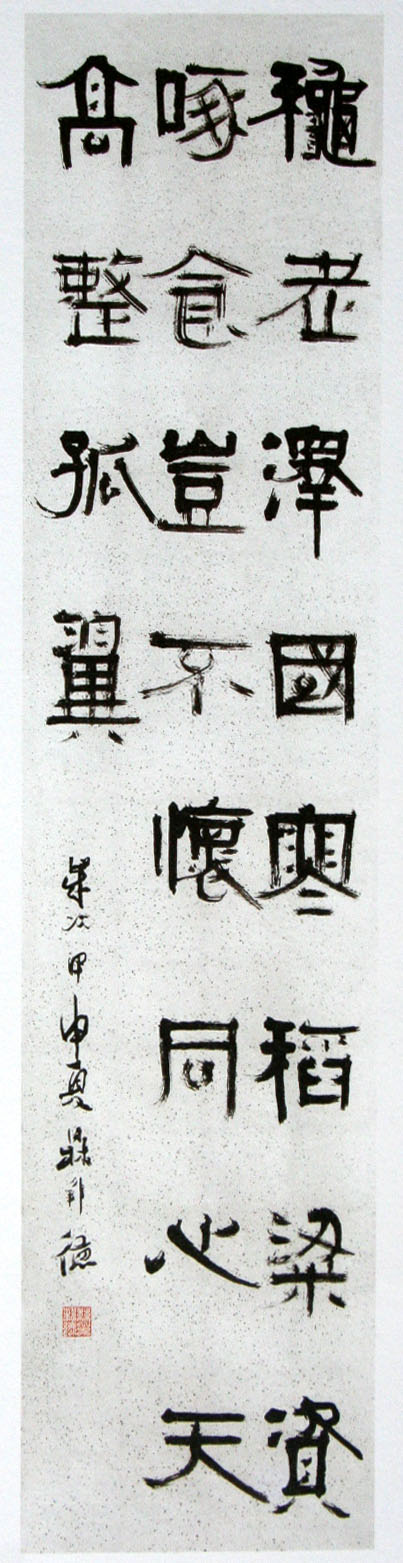 穐老澤國寒稻粱資
啄食豈不懷同心天
高整孤翼
歲次甲申夏